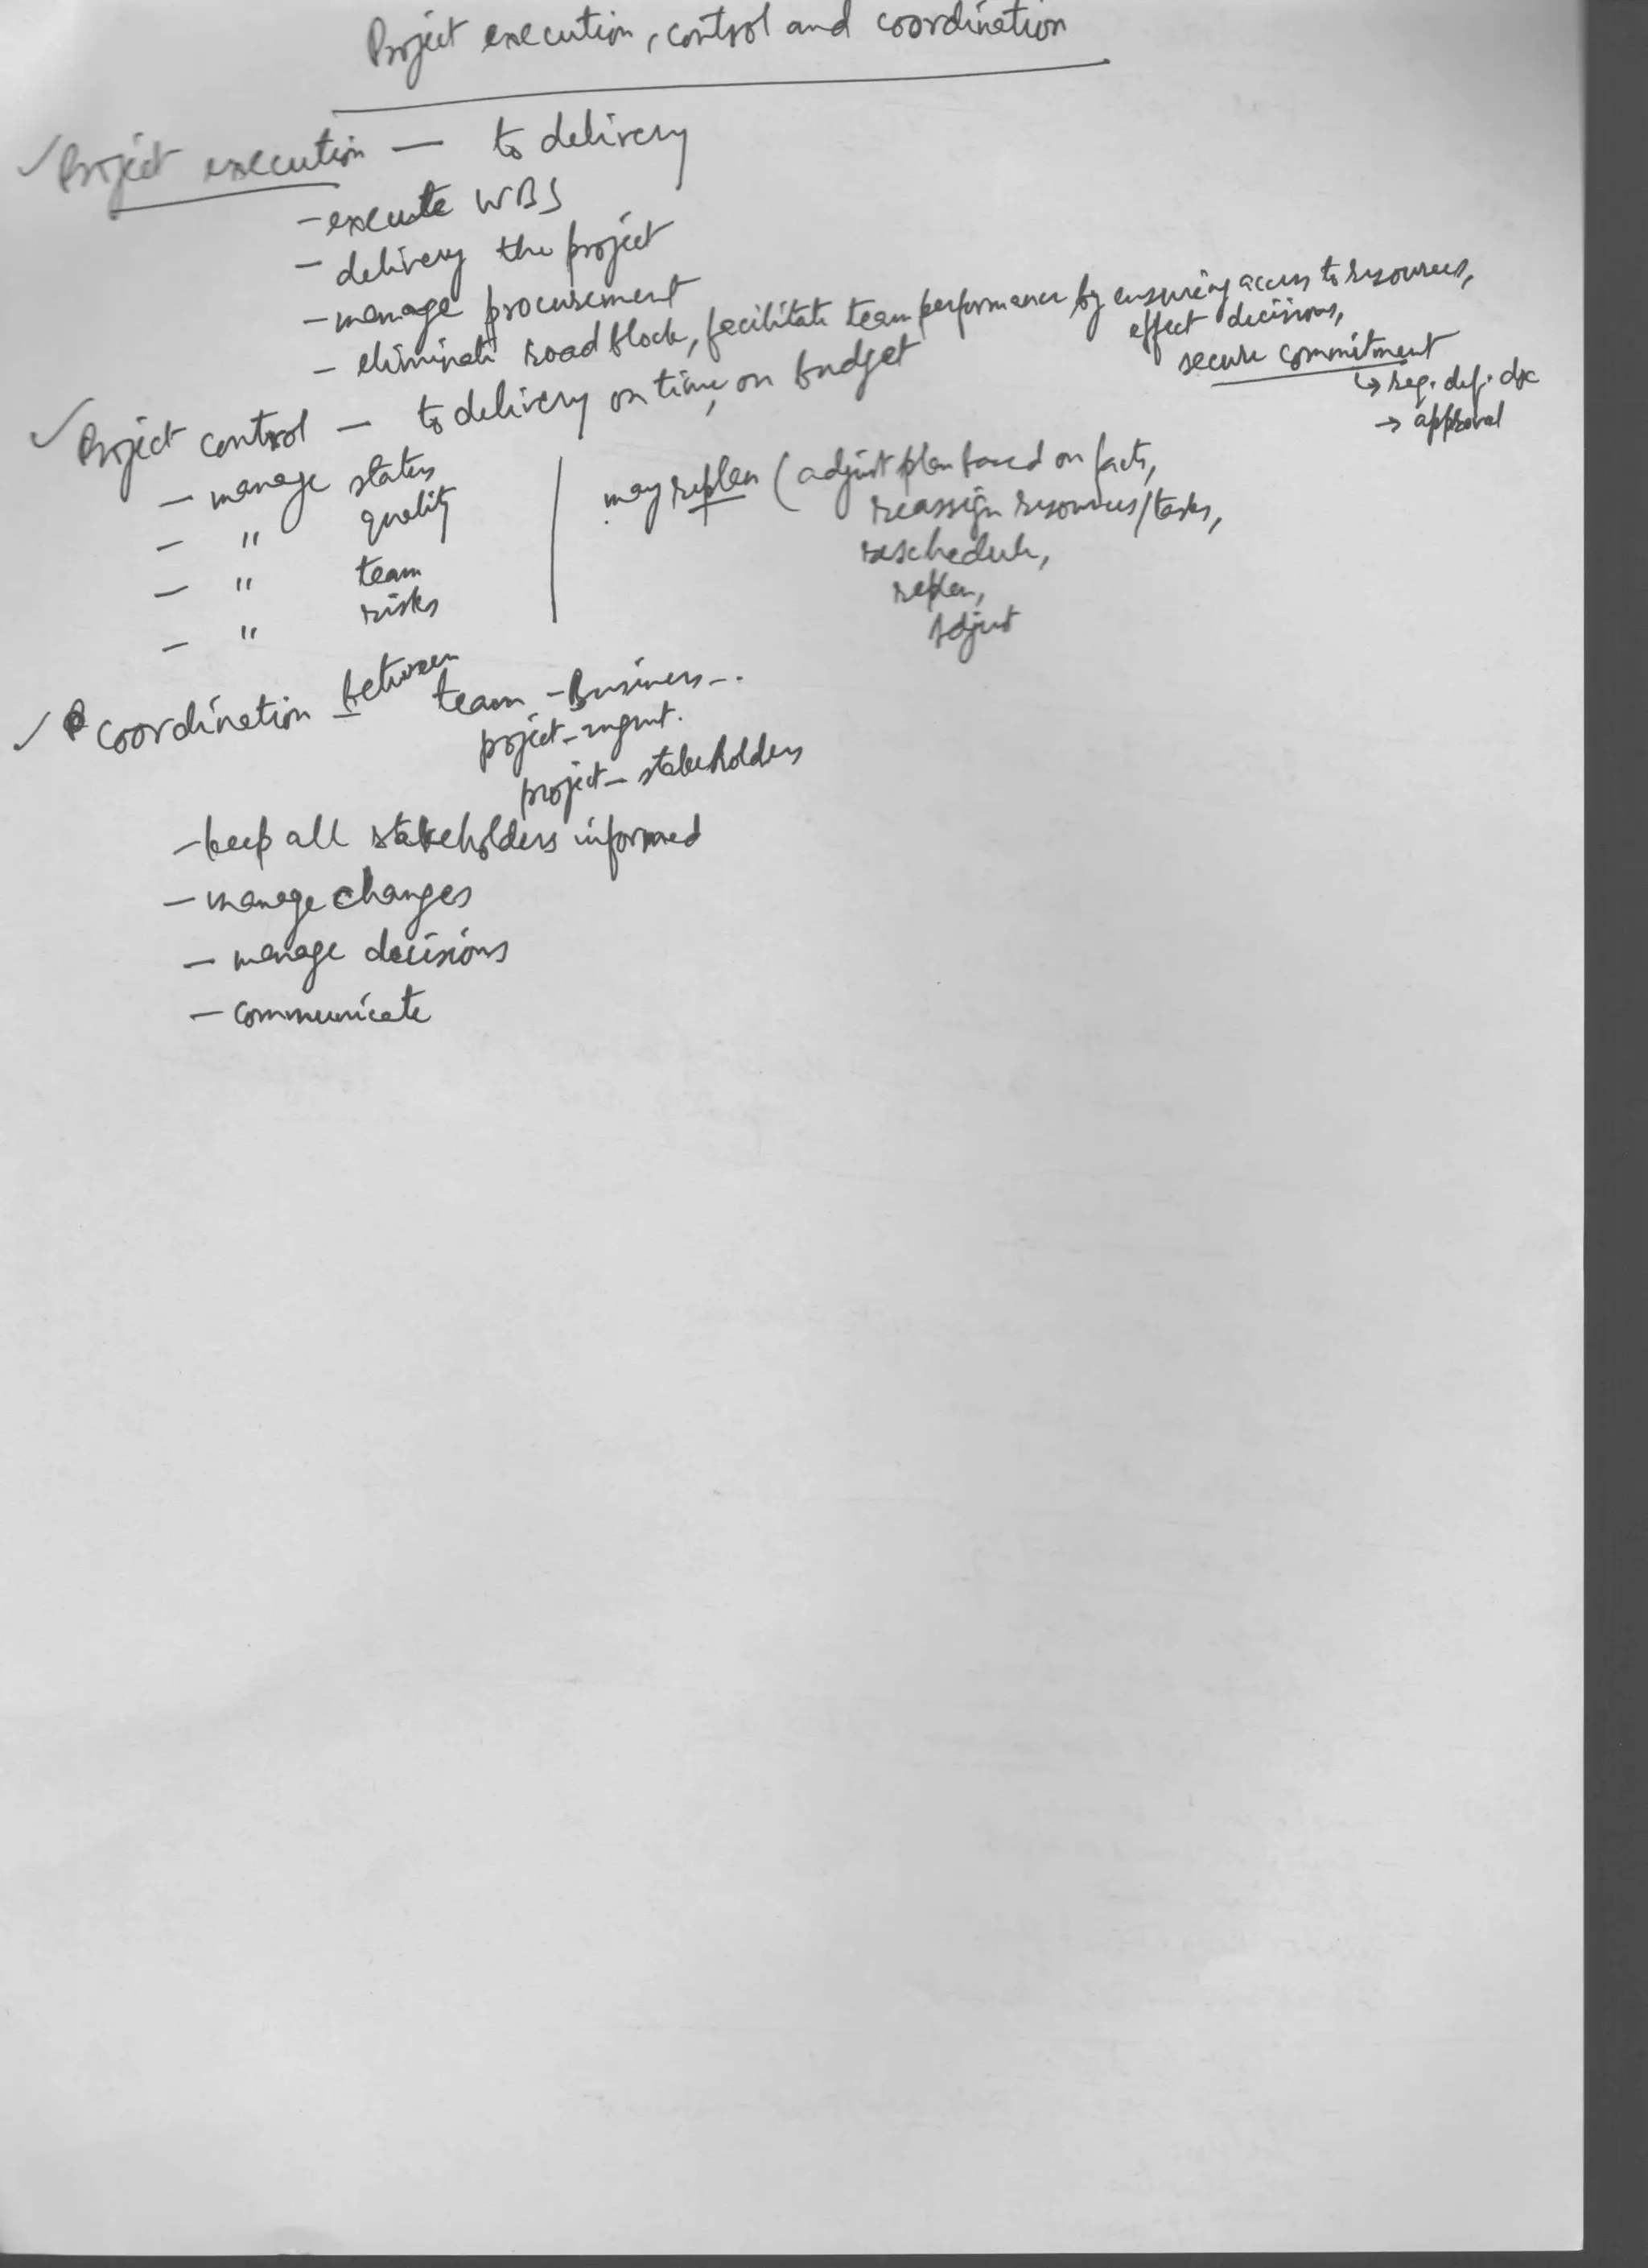 Project execution, control and coordination
✓ Project execution — to delivery
- execute WBS
- delivery the project
- manage procurement
- eliminate roadblock, facilitate team performance by ensuring access to resources,
effect decisions,
secure commitment
↳ req. def. doc
→ approval
✓ Project control — to delivery on time, on budget
- manage status
- " quality
- " team
- " risks
may replan (adjust plan based on facts,
reassign resources/tasks,
reschedule,
replan,
adjust
✓ coordination between team - Business -..
project - mgmt.
project - stakeholders
- keep all stakeholders informed
- manage changes
- manage decisions
- communicate